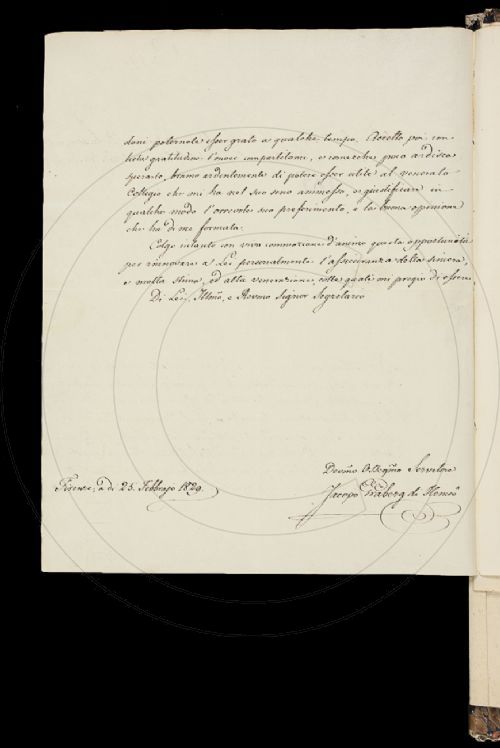 doni potervele esser grato a qualche tempo. Accetto poi con
lieta gratitudine l'onore compartitomi, e comechè poco ardisca
sperarlo, bramo ardentemente di potere esser utile al venerato
Collegio che mi ha nel suo seno ammesso, e giustificare in
qualche modo l'orrevole suo proferimento, e la buona opinione
che ha di me formata.
Colgo intanto con viva commozione d'animo questa opportunità
per rinnovare a Lei personalmente l'assicuranza della sincera,
e molta stima, ed alta venerazione, colle quali mi pregio di essere
Di Lei, Illmo, e Revmo Signor Segretario
Devmo Obbqmo Servitore
Firenze, a dì 25. Febbrajo 1829.
Jacopo Gråberg di Hemsö